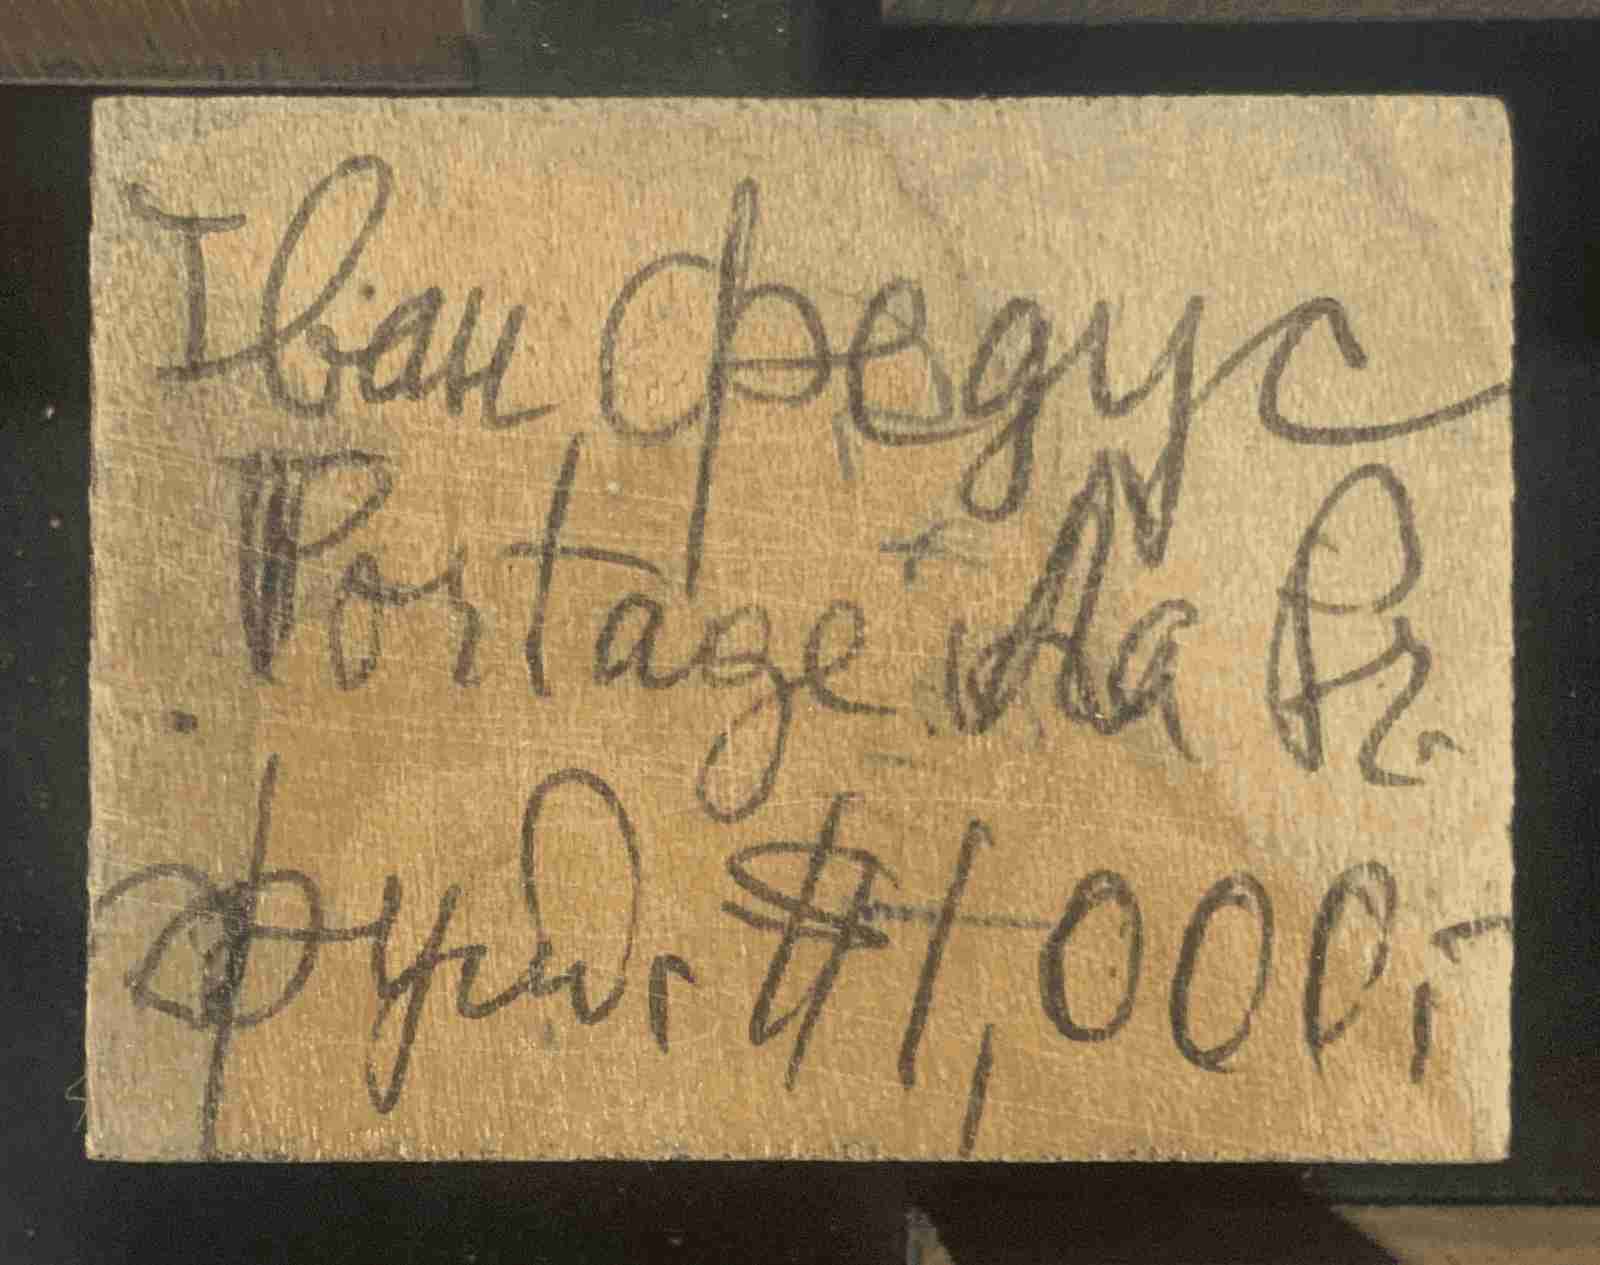 Іван Федус
Portage La Pr.
фунд. $1,000,-